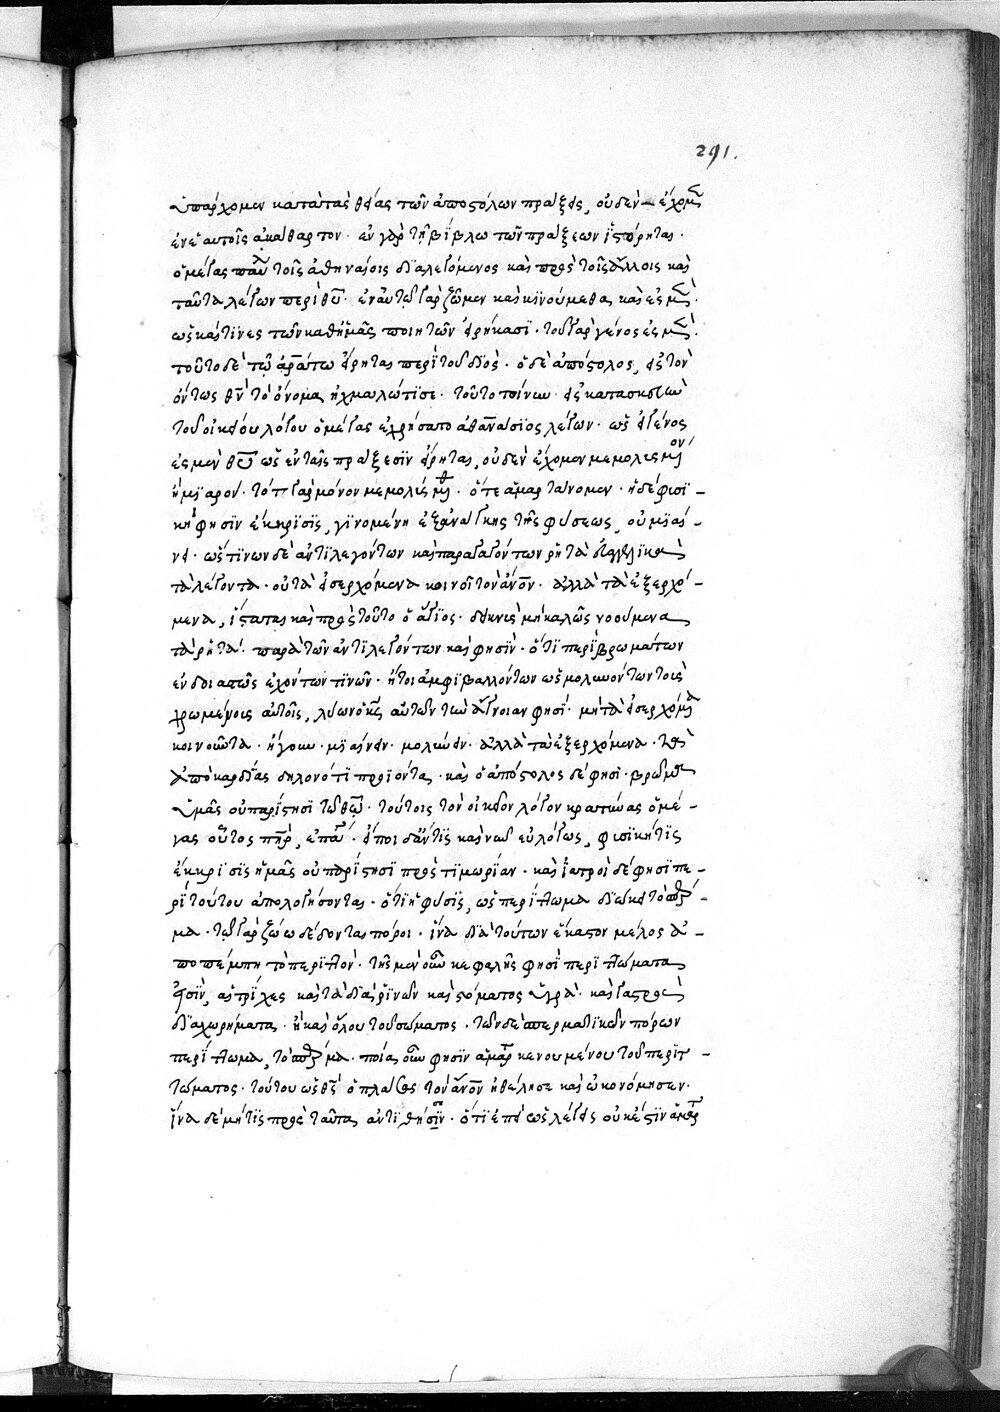 291.
ὑπάρχομεν κατὰ τὰς θείας τῶν ἀποστόλων πράξεις, οὐδὲν ἔχομεν
ἐν ἑαυτοῖς ἀκάθαρτον· ἐν γὰρ τῇ βίβλω τῶν πράξεων ἱστόρηται·
ὁ μέγας παῦλος τοῖς ἀθηναίοις διαλεγόμενος καὶ πρὸς τοῖς ἄλλοις καὶ
ταῦτα λέγων περὶ θῦ· ἐν αὐτῶ γὰρ ζῶμεν καὶ κινούμεθα καὶ ἐσμὲν·
ὡς καί τινες τῶν καθ' ἡμᾶς ποιητῶν εἰρήκασι· τοῦ γὰρ γένος ἐσμὲν·
τοῦτο δὲ τῶ ἀράτω εἴρηται περὶ τοῦ διὸς· ὁ δὲ ἀπόστολος, εἰς τὸν
ὄντως θν τὸ ὄνομα ἠχμαλώτισε· τοῦτο τοίνυν εἰς κατασκευὴν
τοῦ οἰκείου λόγου ὁ μέγας ἐχρήσατο ἀθανάσιος λέγων· ὡς εἰ γένος
ἐσμὲν θῦ ὡς ἐν ταῖς πράξεσιν εἴρηται, οὐδὲν ἔχομεν μεμολυσμένον
ἢ μιαρόν· τότε γὰρ μόνον μεμολύσμεθα· ὅτε ἁμαρτάνομεν· ἡ δὲ φυσι-
κὴ φησὶν ἔκκρισις, γινομένη ἐξ ἀνάγκης τῆς φύσεως, οὐ μιαί-
νει· ὥς τινων δὲ ἀντιλεγόντων καὶ παραγαγόντων ῥητὰ εὐαγγελικὰ
τὰ λέγοντα· οὐ τὰ εἰσερχόμενα κοινοῖ τὸν ἄνον· ἀλλὰ τὰ ἐξερχό-
μενα, ἵσταται καὶ πρὸς τοῦτο ὁ ἅγιος· δεικνὺς μὴ καλῶς νοούμενα
τὰ ῥητὰ· παρὰ τῶν ἀντιλεγόντων καὶ φησὶν· ὅτι περὶ βρωμάτων
ἐνδοιαστῶς ἐχόντων τινῶν· ἤτοι ἀμφιβαλλόντων ὡς μολυνόντων τοὺς
χρωμένοις αὐτοῖς, λύων ὁ κς αὐτῶν τὴν ἄγνοιαν φησὶ· μὴ τὰ εἰσερχόμενα
κοινοῦντα· ἤγουν· μιαίνειν· μολύνειν· ἀλλὰ τὰ ἐξερχόμενα· τὰ
ἀπὸ καρδίας δηλονότι προϊόντα· καὶ ὁ ἀπόστολος δέ φησι· βρῶμα
ὑμᾶς οὐ παρίστησι τῶ θῶ· τούτοις τὸν οἰκεῖον λόγον κρατύνας ὁ μέ-
γας οὗτος πηρ, ἐπάγει· εἴποι δ' ἄν τις καὶ νῦν εὐλόγως, φυσική τις
ἔκκρισις ἡμᾶς οὐ παρίστησι πρὸς τιμωρίαν· καὶ ἰατροὶ δέ φησι πε-
ρὶ τούτου ἀπολογήσονται· ὅτι ἡ φύσις, ὡς περίττωμα διώκει τὸ σπέρ-
μα· τῶ γὰρ ζώω δέδονται πόροι· ἵνα διὰ τούτων ἕκαστον μέλος ἀ-
ποπέμπη τὸ περιττὸν· τῆς μὲν οὖν κεφαλῆς φησὶ περιττώματα
εἰσὶν, αἱ τρίχες καὶ τὰ διὰ ῥινῶν καὶ στόματος ὑγρὰ· καὶ γαστρὸς
διαχωρήματα· ἢ καὶ ὅλου τοῦ σώματος· τῶν δὲ σπερματικῶν πόρων
περίττωμα, τὸ σπέρμα· ποία οὖν φησὶν ἁμαρτία κενουμένου τοῦ περιτ-
τώματος· τούτου ὡς θς ὁ πλάσας τὸν ἄνον ἠθέλησε καὶ ὠκονόμησεν·
ἵνα δὲ μή τις πρὸς ταῦτα ἀντιθήσειν· ὅτι ἐπεὶ ὡς λέγεις οὐκ ἔστιν ἀκάθαρτος